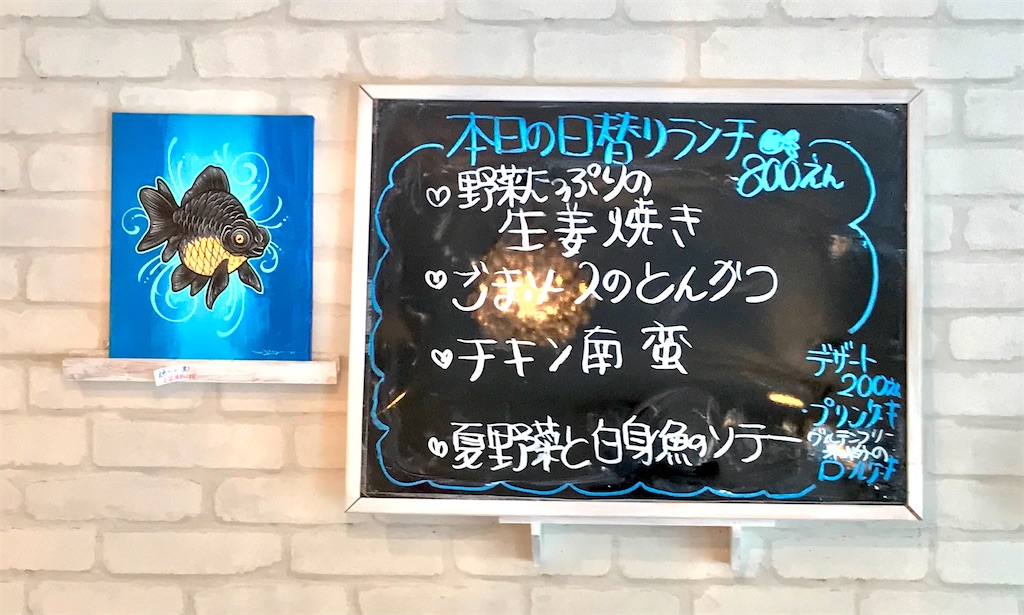 本日の日替りランチ
800えん
♡野菜たっぷりの
生姜焼き
♡ごまソースのとんかつ
♡チキン南蛮
♡夏野菜と白身魚のソテー
デザート
200えん
・プリンケーキ
グルテンフリー
米粉の
ロールケーキ